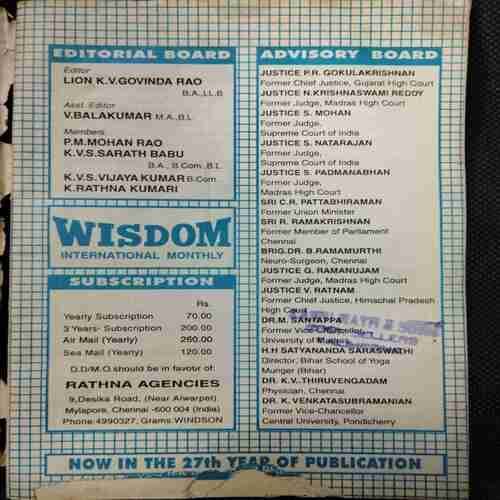 EDITORIAL BOARD
Editor
LION K.V.GOVINDA RAO
B.A.,LL.B
Asst. Editor
V.BALAKUMAR M.A.,B.L
Members
P.M.MOHAN RAO
K.V.S.SARATH BABU
B.A., B.Com.,B.L.
K.V.S.VIJAYA KUMAR B.Com.
K.RATHNA KUMARI
WISDOM
INTERNATIONAL MONTHLY
SUBSCRIPTION
Rs.
Yearly Subscription 70.00
3 Years- Subscription 200.00
Air Mail (Yearly) 260.00
Sea Mail (Yearly) 120.00
D.D/M.O.should be in favour of:
RATHNA AGENCIES
9,Desika Road, (Near Alwarpet)
Mylapore, Chennai -600 004 (India)
Phone:4990327; Grams:WINDSON
ADVISORY BOARD
JUSTICE P.R. GOKULAKRISHNAN
Former Chief Justice, Gujarat High Court
JUSTICE N.KRISHNASWAMI REDDY
Former Judge, Madras High Court
JUSTICE S. MOHAN
Former Judge,
Supreme Court of India
JUSTICE S. NATARAJAN
Former Judge,
Supreme Court of India
JUSTICE S. PADMANABHAN
Former Judge,
Madras High Court
SRI C.R. PATTABHIRAMAN
Former Union Minister
SRI R. RAMAKRISHNAN
Former Member of Parliament
Chennai
BRIG.DR. B.RAMAMURTHI
Neuro-Surgeon, Chennai
JUSTICE G. RAMANUJAM
Former Judge, Madras High Court
JUSTICE V. RATNAM
Former Chief Justice, Himachal Pradesh
High Court
DR.M. SANTAPPA
Former Vice-Chancellor
University of Madras
H.H SATYANANDA SARASWATHI
Director, Bihar School of Yoga
Munger (Bihar)
DR. K.V..THIRUVENGADAM
Physician, Chennai
DR. K. VENKATASUBRAMANIAN
Former Vice-Chancellor
Central University, Pondicherry
NOW IN THE 27th YEAR OF PUBLICATION